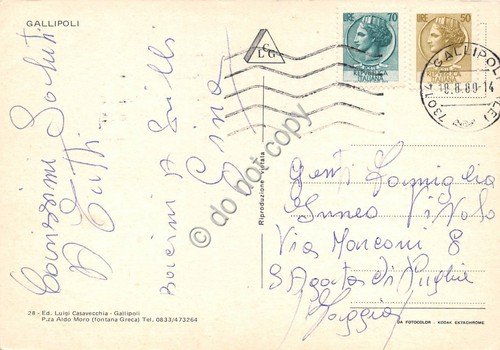 GALLIPOLI
Carissimi Saluti
A Tutti
Bacioni A
Gina
CLG
LIRE 70
REPUBBLICA
ITALIANA
LIRE 50
REPUBBLICA
ITALIANA
73014 GALLIPOLI (LE)
8.8.80-14
Gent. Famiglia
Via Marconi 8
S Agata di Puglia
Foggia
Riproduzione vietata
28 - Ed. Luigi Casavecchia - Gallipoli
P.za Aldo Moro (fontana Greca) Tel. 0833/473264
DA FOTOCOLOR - KODAK EKTACHROME
do not copy